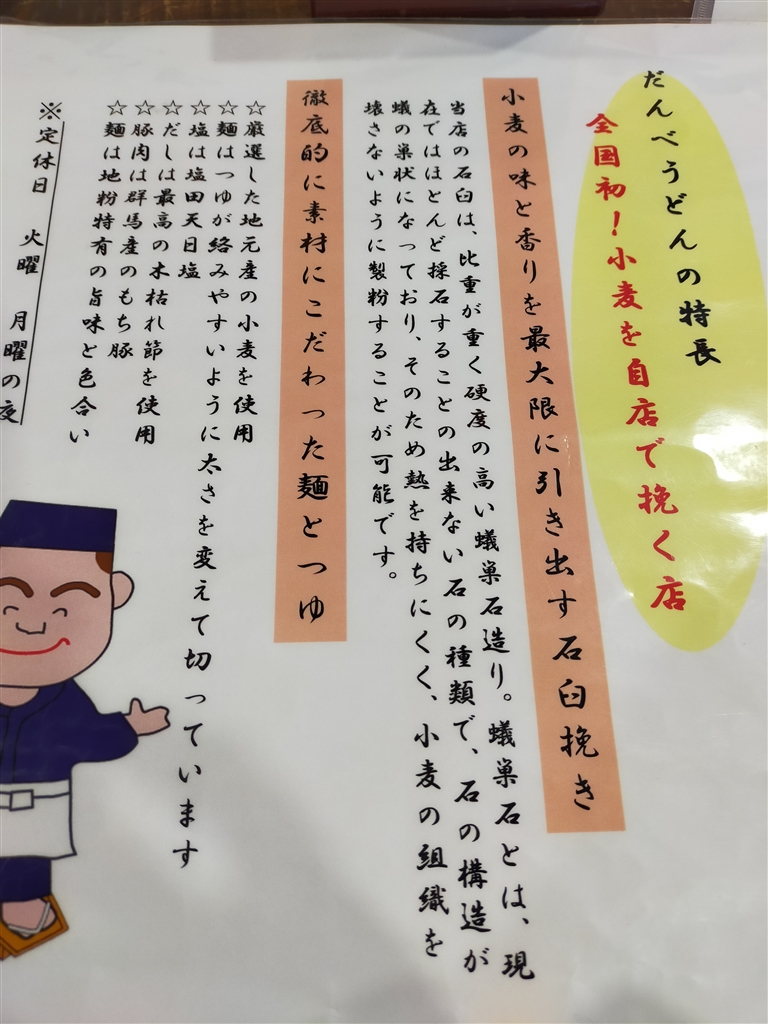 だんべうどんの特長
全国初！小麦を自店で挽く店
小麦の味と香りを最大限に引き出す石臼挽き
当店の石臼は、比重が重く硬度の高い蟻巣石造り。蟻巣石とは、現
在ではほとんど採石することの出来ない石の種類で、石の構造が
蟻の巣状になっており、そのため熱を持ちにくく、小麦の組織を
壊さないように製粉することが可能です。
徹底的に素材にこだわった麺とつゆ
☆厳選した地元産の小麦を使用
☆麺はつゆが絡みやすいように太さを変えて切っています
☆塩は塩田天日塩
☆だしは最高の本枯れ節を使用
☆豚肉は群馬産のもち豚
☆麺は地粉特有の旨味と色合い
※定休日 火曜 月曜の夜